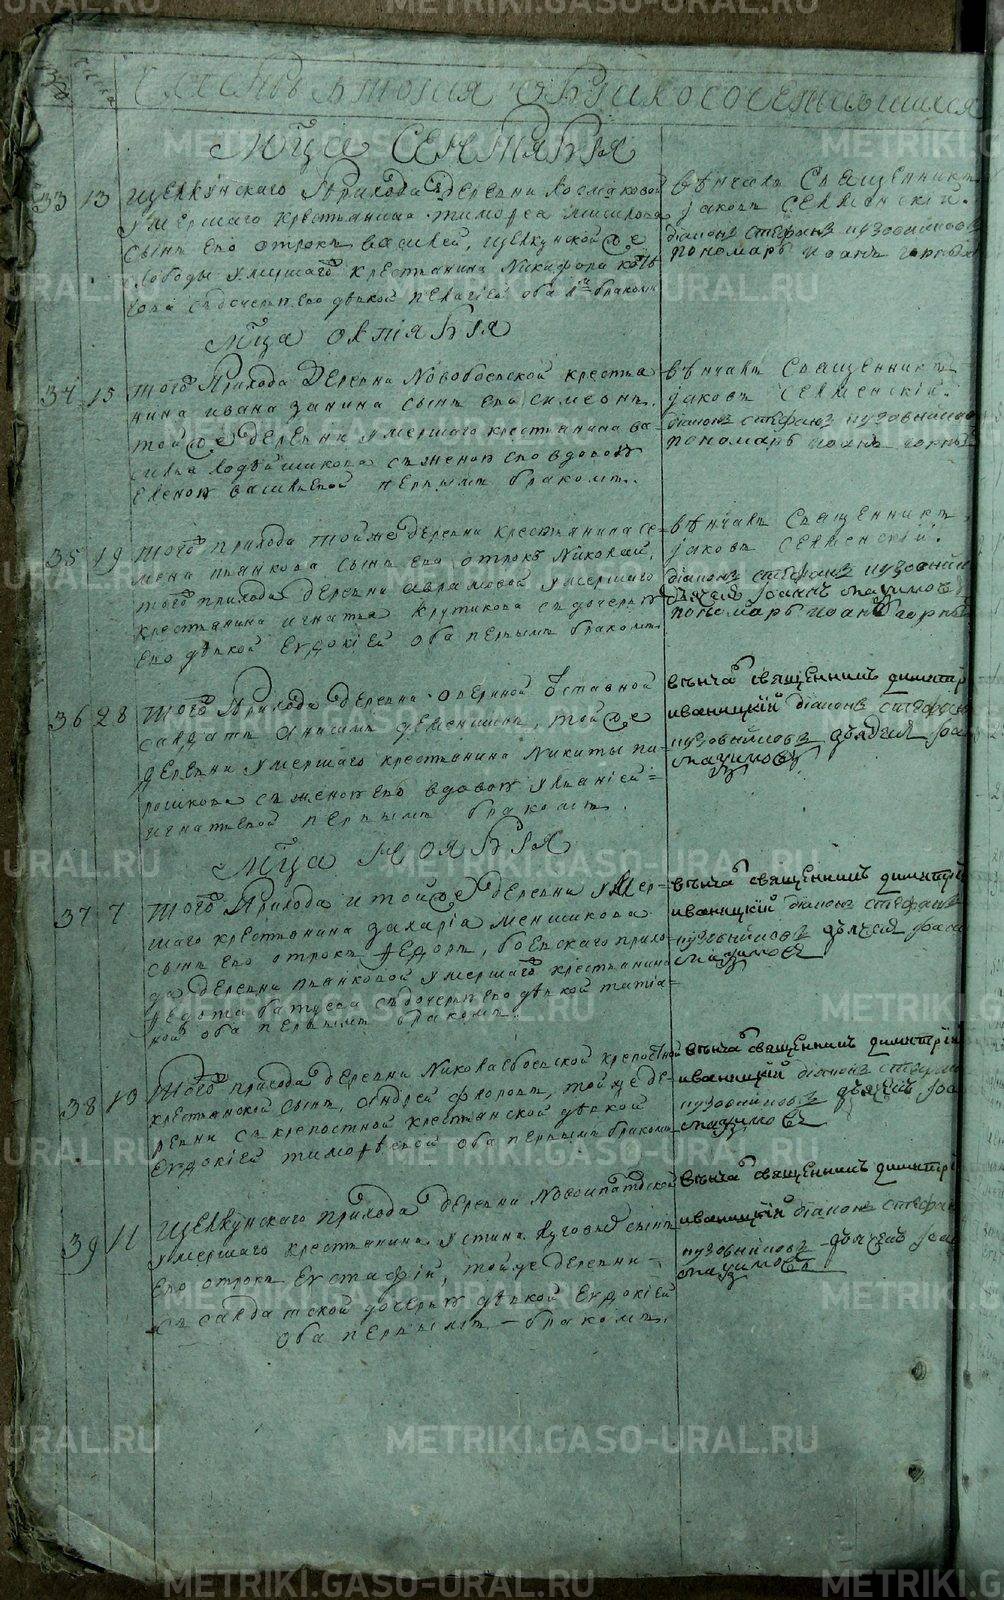 Часть вторая о бракосочетавшихся
Мца Сентября
33 13 Щелкунскаго Прихода Деревни Космаковой
умершаго крестьянина тимофеа
сынъ его отрокъ василей, щелкунской же
слободы умершаго крестьянина Никифора
съ дочерью его девкой пелагiей оба 1м бракомъ
вѣнчалъ Священникъ
Iаковъ Селменскiй.
дiаконъ стефанъ пузовниковъ
пономарь иоанъ горныхъ
Мца октября
34 15 того Прихода Деревни Новобоевской крестья
нина ивана занина сынъ его симеонъ,
той же деревни умершаго крестьянина ва
силья съ женою его вдовою
еленою васильевой первымъ бракомъ.
вѣнчалъ Священникъ
Iаковъ Селменскiй.
дiаконъ стефанъ пузовниковъ
пономарь иоанъ горныхъ
35 19 того прихода тойже деревни крестьянина се-
мена пьянкова сынъ его отрокъ Николай,
того прихода деревни аврамовой умершаго
крестьянина игнатья крутикова съ дочерью
его девкой Евдокiей оба первымъ бракомъ
вѣнчалъ Священникъ
Iаковъ Селменскiй.
дiаконъ стефанъ пузовников
дьячекъ Iоаннъ мазимовъ
пономарь иоанъ горных
36 28 того Прихода деревни отставной
салдатъ Анисимъ деменшинъ, той же
деревни умершаго крестьянина Никиты па-
рошкова съ женою его вдовою ульянiей
игнатьевой первымъ бракомъ.
вѣнча священникъ димитрi
иваницкiй дiаконъ стефанъ
пузовниковъ дьячекъ Iоа
мазимовъ
Мца ноября
37 7 того Прихода и той же деревни умер-
шаго крестьянина захарiа меншикова
сынъ его отрокъ ѳедоръ, боевскаго прихо
да деревни пьянковой умершаго крестьянина
ѳедота батуева съ дочерью его девкой татiа-
ной оба первымъ бракомъ.
вѣнча священникъ димитрiй
иваницкiй дiаконъ стефанъ
пузовниковъ дьячекъ Iоа
мазимовъ
38 13 того прихода деревни Николаевской крепостной
крестьянской сынъ, Андрей флоровъ, той же де
ревни съ крепостной крестьянской девкой
Евдокiей тимоѳеевой оба первымъ бракомъ
вѣнча священникъ димитрiй
иваницкiй дiаконъ стефан
пузовниковъ дьячекъ Iоа
мазимовъ
39 11 Щелкунскаго прихода деревни Новоипатовской
умершаго крестьянина устина луговыхъ сынъ
его отрокъ Евстафiй, той же деревни
съ салдатской дочерью девкой Евдокiей
оба первымъ бракомъ.
вѣнча священникъ димитрi
иваницкiй дiаконъ стефан
пузовниковъ дьячекъ Iоа
мазимовъ
METRIKI.GASO-URAL.RU